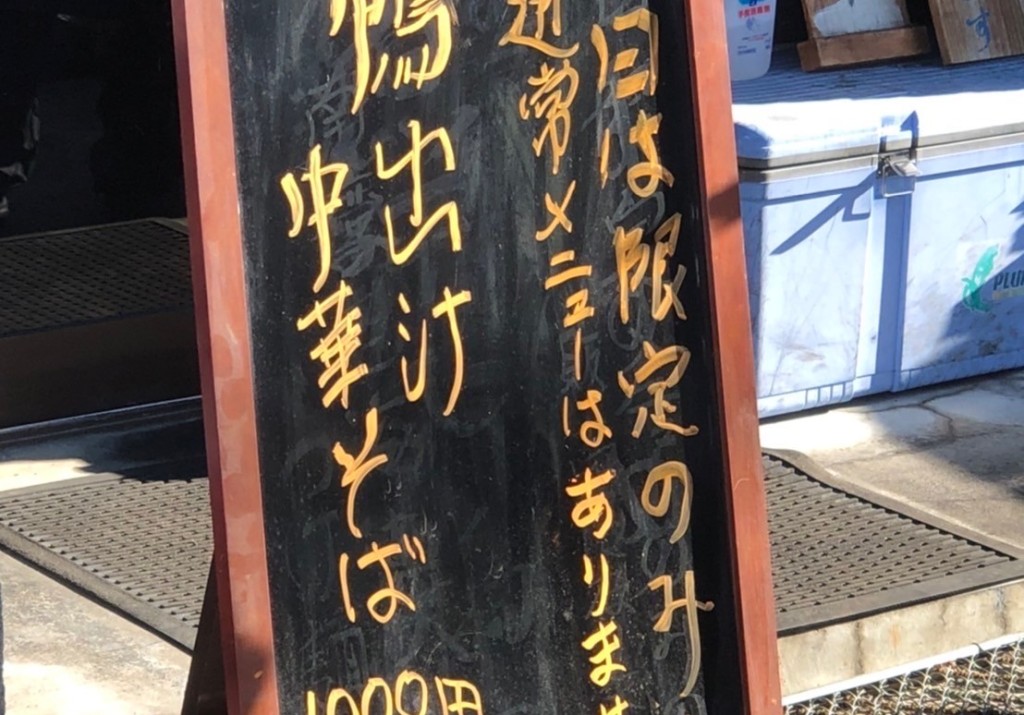 日は限定のみの
通常メニューはありませ
鴨出汁
中華そば
1000円
PLU
す